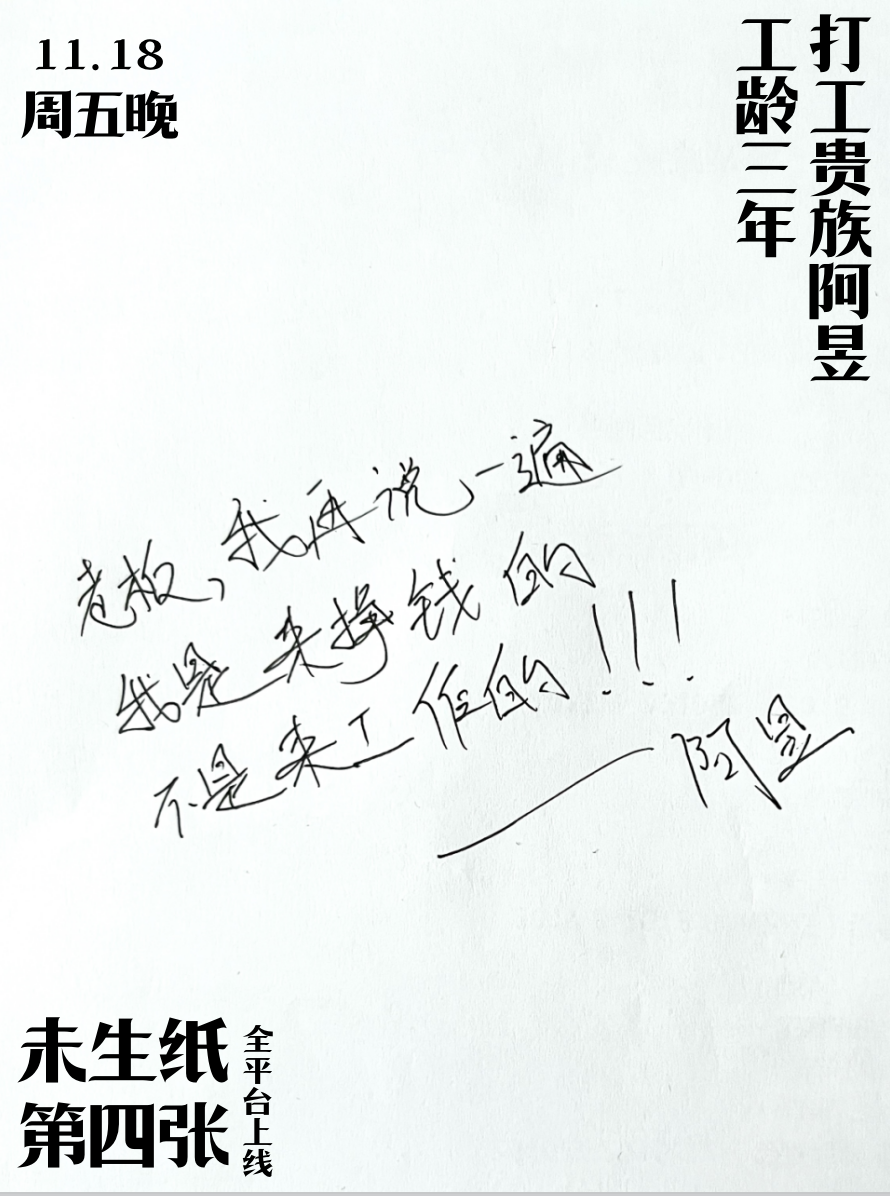 11.18
周五晚
打工贵族阿昱
工龄三年
老板,我再说一遍
我是来挣钱的
不是来工作的!!!
——阿昱
未生纸
第四张
全平台上线